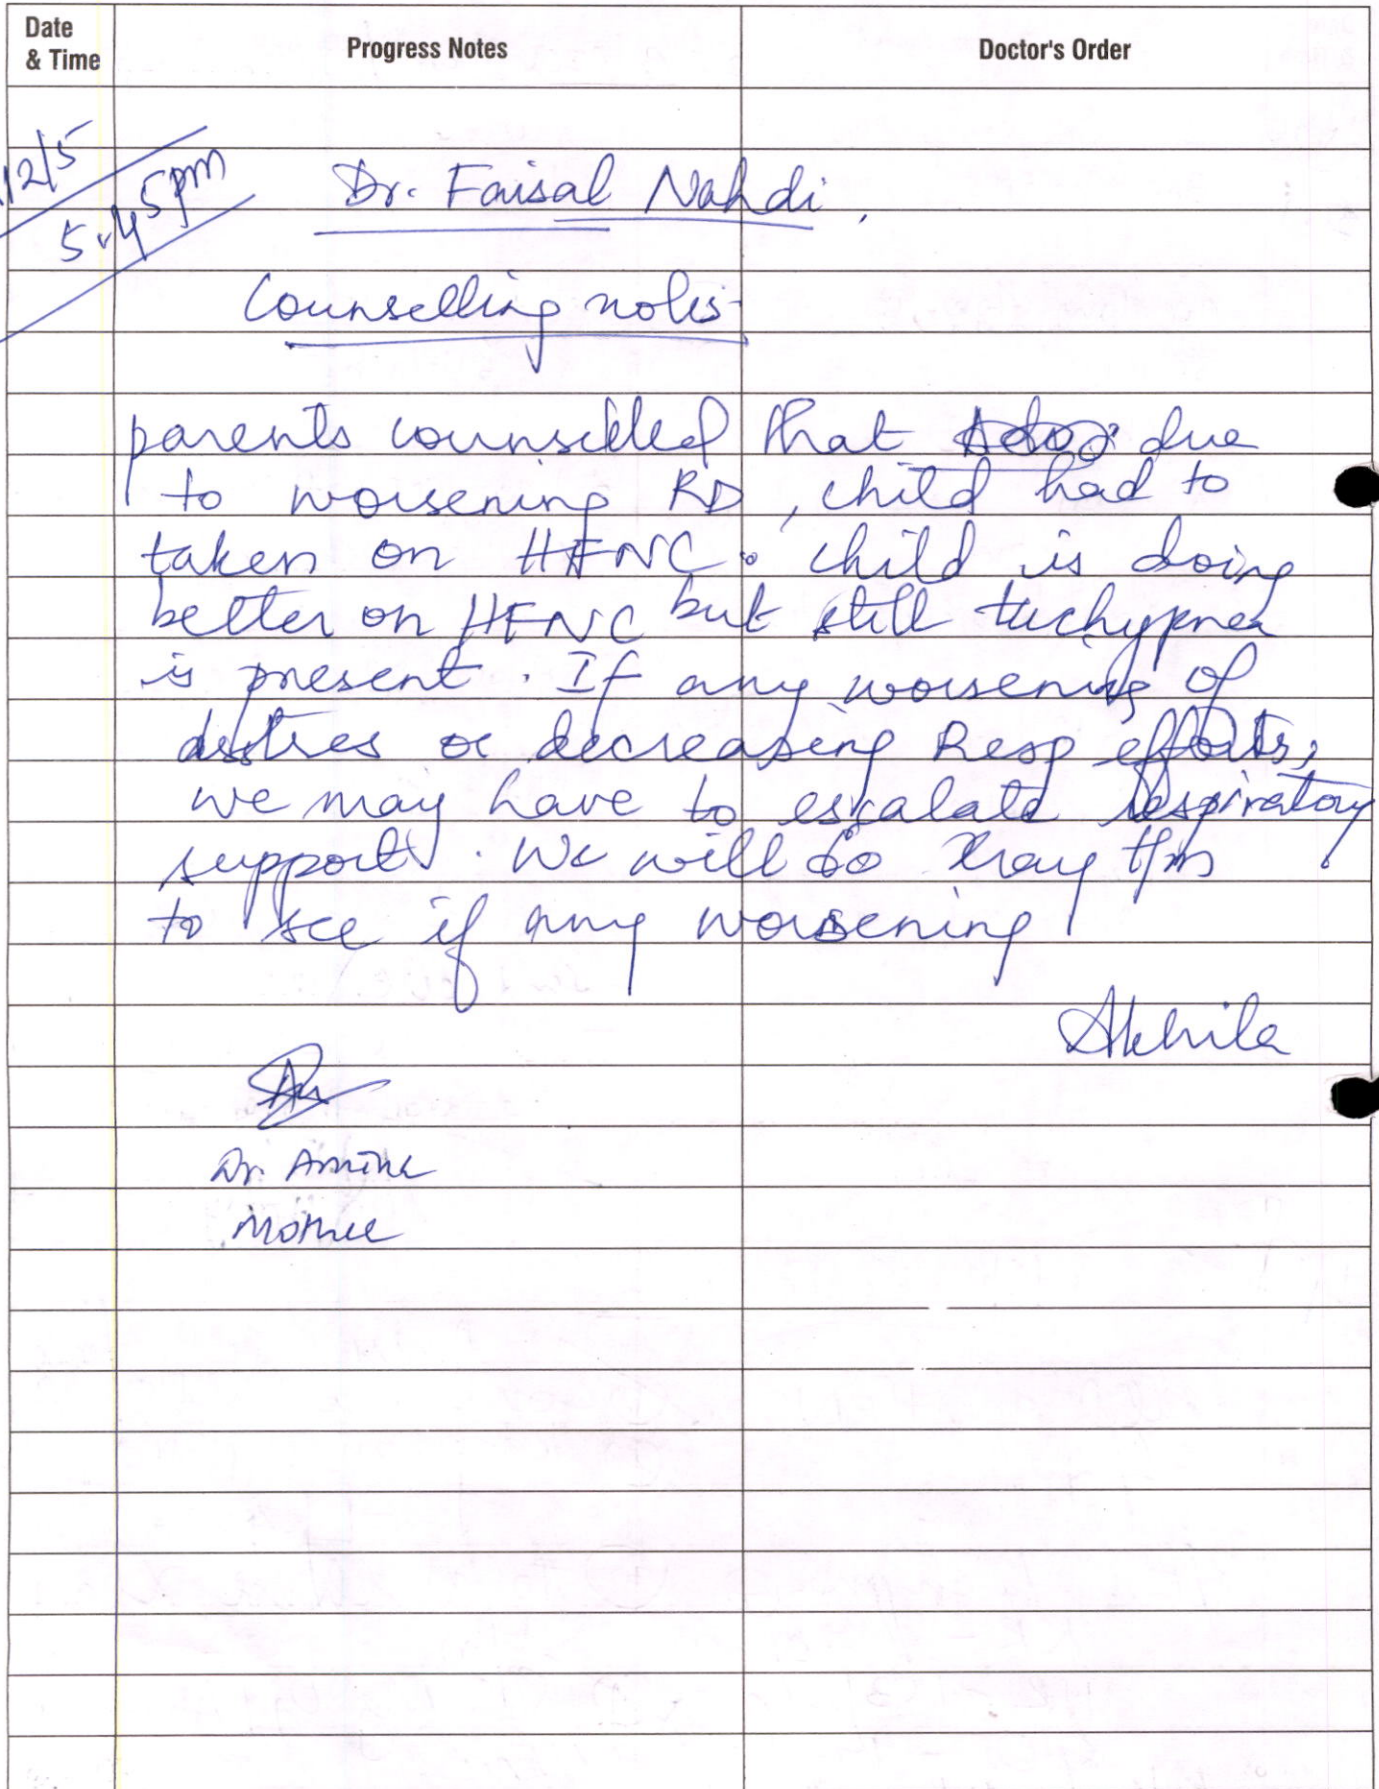 Date
& Time
Progress Notes
Doctor's Order
12/5
5.45pm
Dr. Faisal Nahdi.
Counselling notes
parents counselled that due
to worsening RD, child had to
taken on HFNC. child is doing
better on HFNC but still tachypnea
is present. If any worsening of
distres or decreasing Resp efforts,
we may have to escalate respiratory
support. We will do Xray
to see if any worsening
Akhila
Dr. Amina
Mother